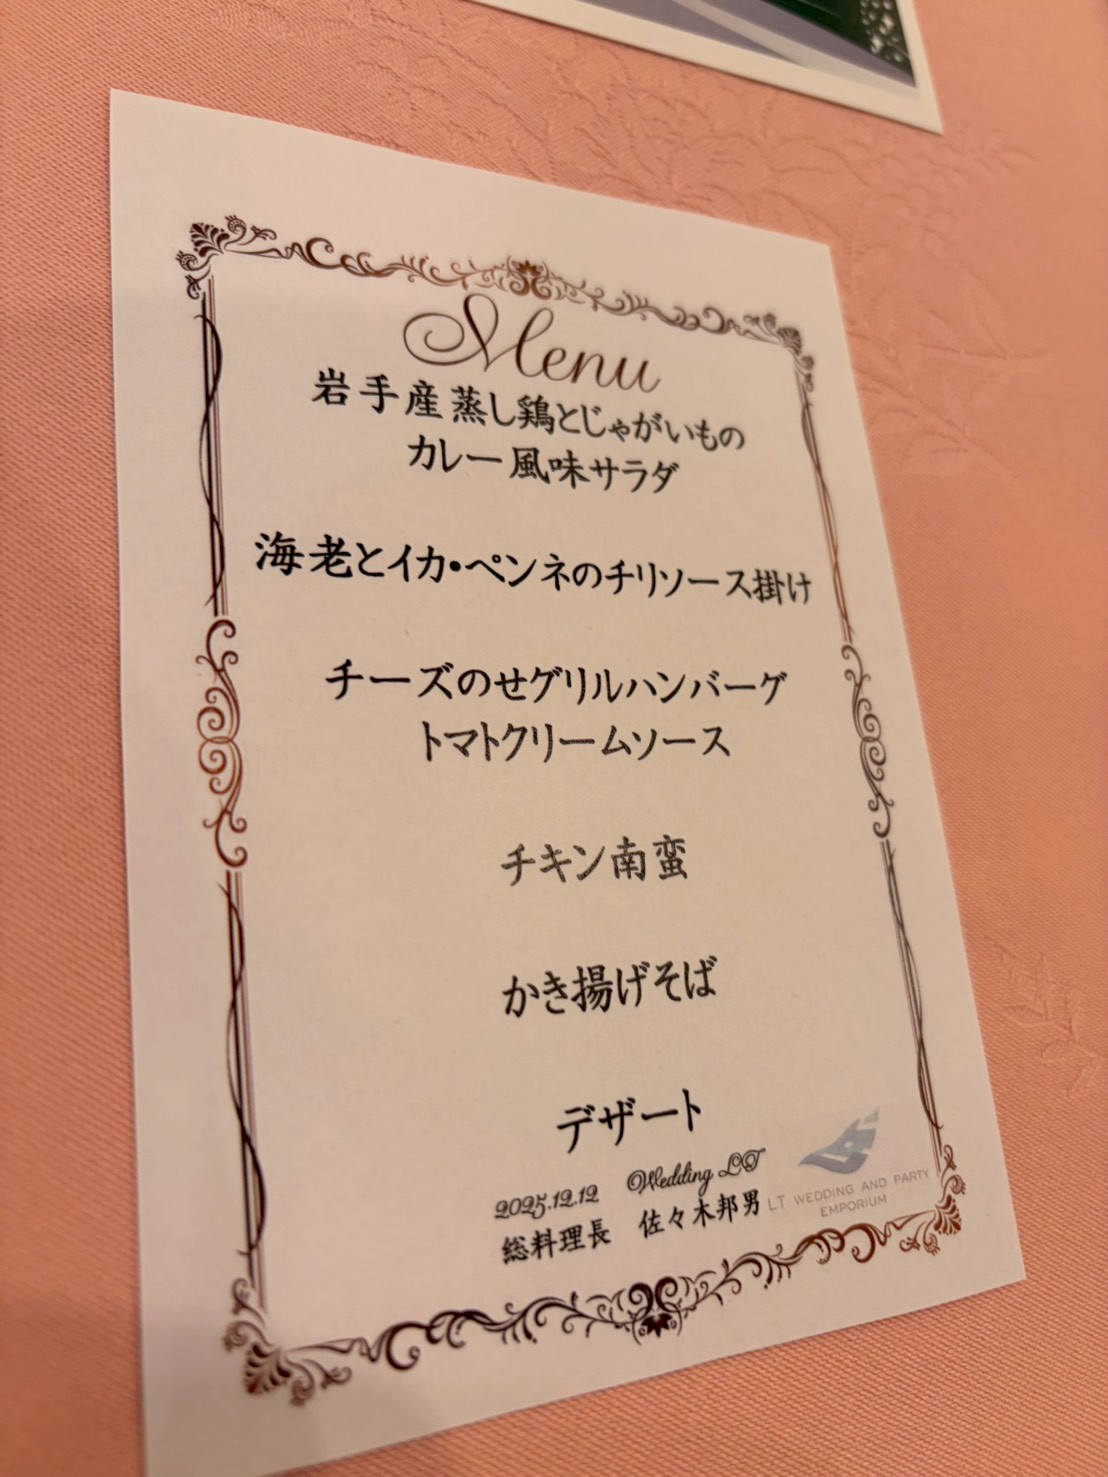 Menu
岩手産蒸し鶏とじゃがいもの
カレー風味サラダ
海老とイカ・ペンネのチリソース掛け
チーズのせグリルハンバーグ
トマトクリームソース
チキン南蛮
かき揚げそば
デザート
2025.12.12 Wedding LT
総料理長 佐々木邦男
LT WEDDING AND PARTY
EMPORIUM